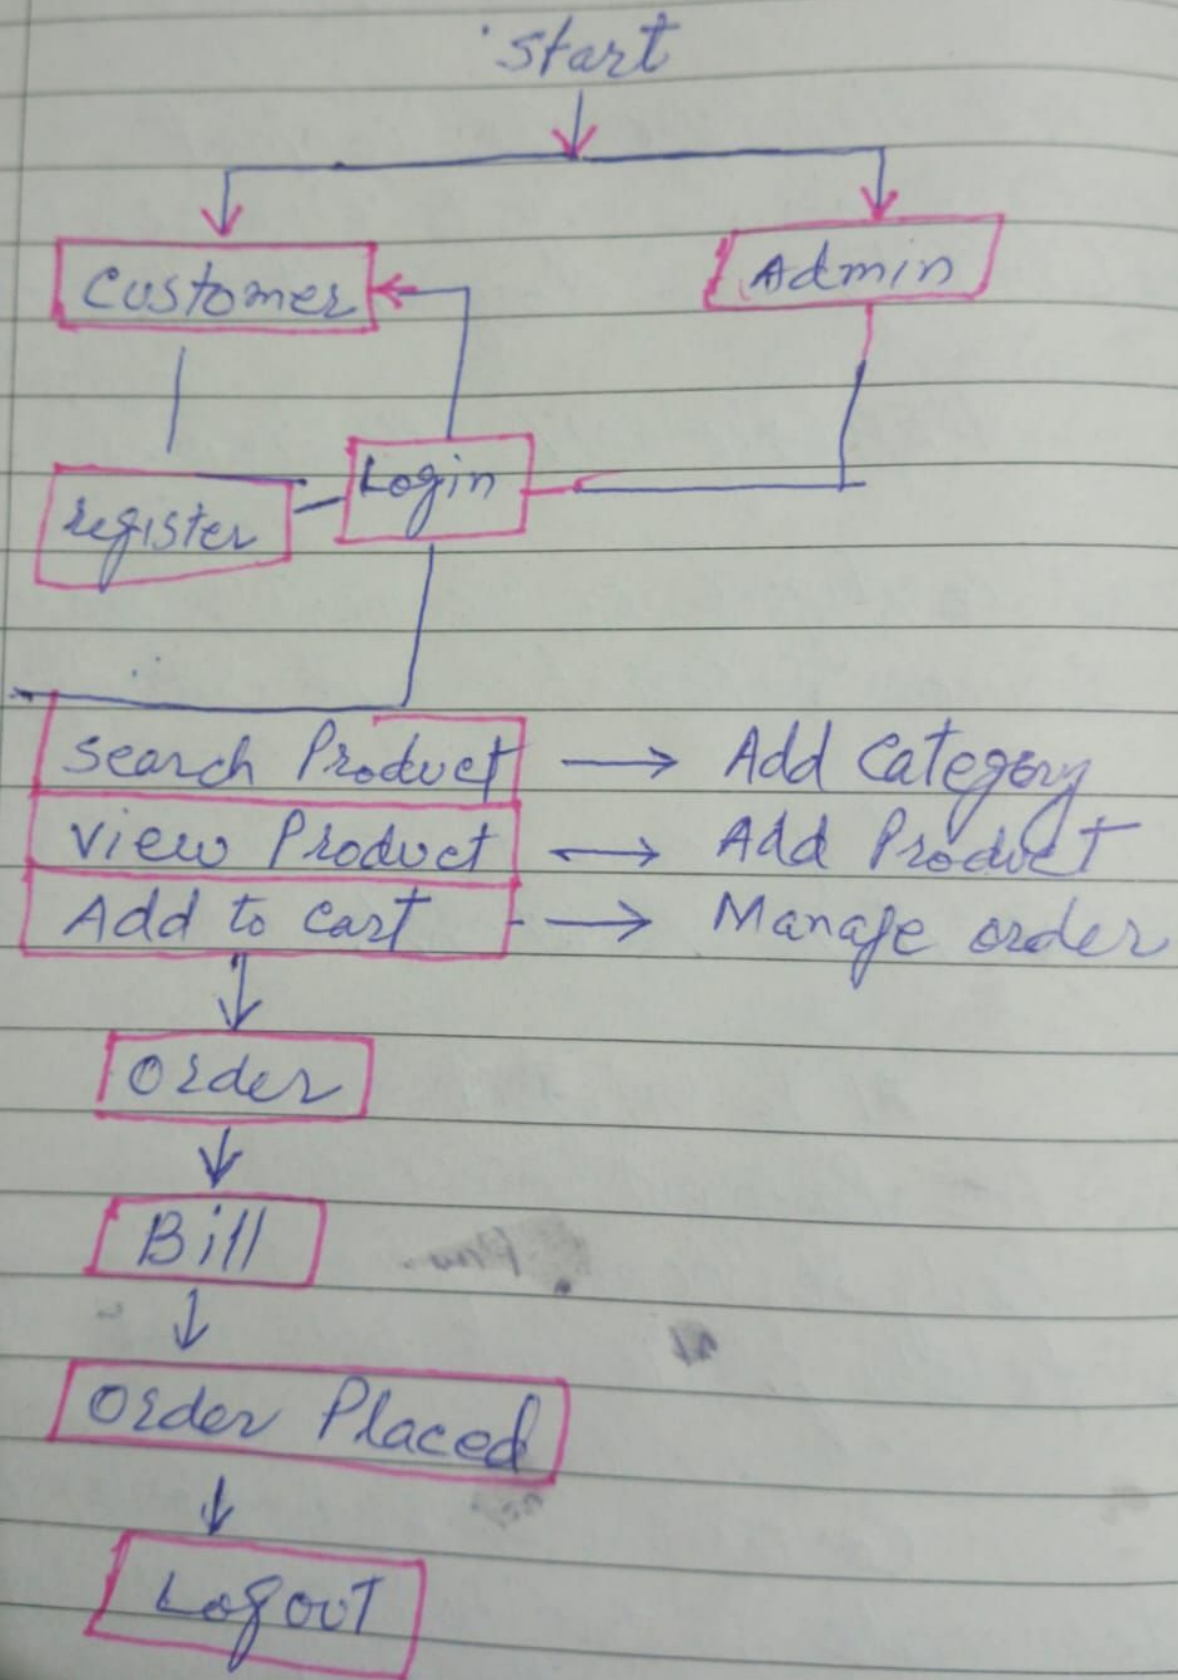 Start
Customer
Admin
Login
register
Search Product → Add Category
View Product → Add Product
Add to Cart → Manage order
Order
Bill
Order Placed
Logout